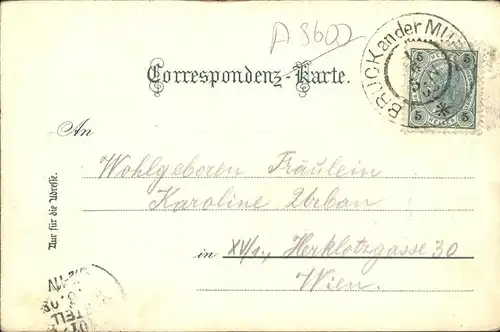 A 8600
BRUCK an der MUR
5 5
HELLER
5 5
Correspondenz-Karte.
An
Wohlgeboren Fräulein
Karoline Urban
in XV/1., Herklotzgasse 30
Wien.
Nur für die Adresse.
BESTELLT